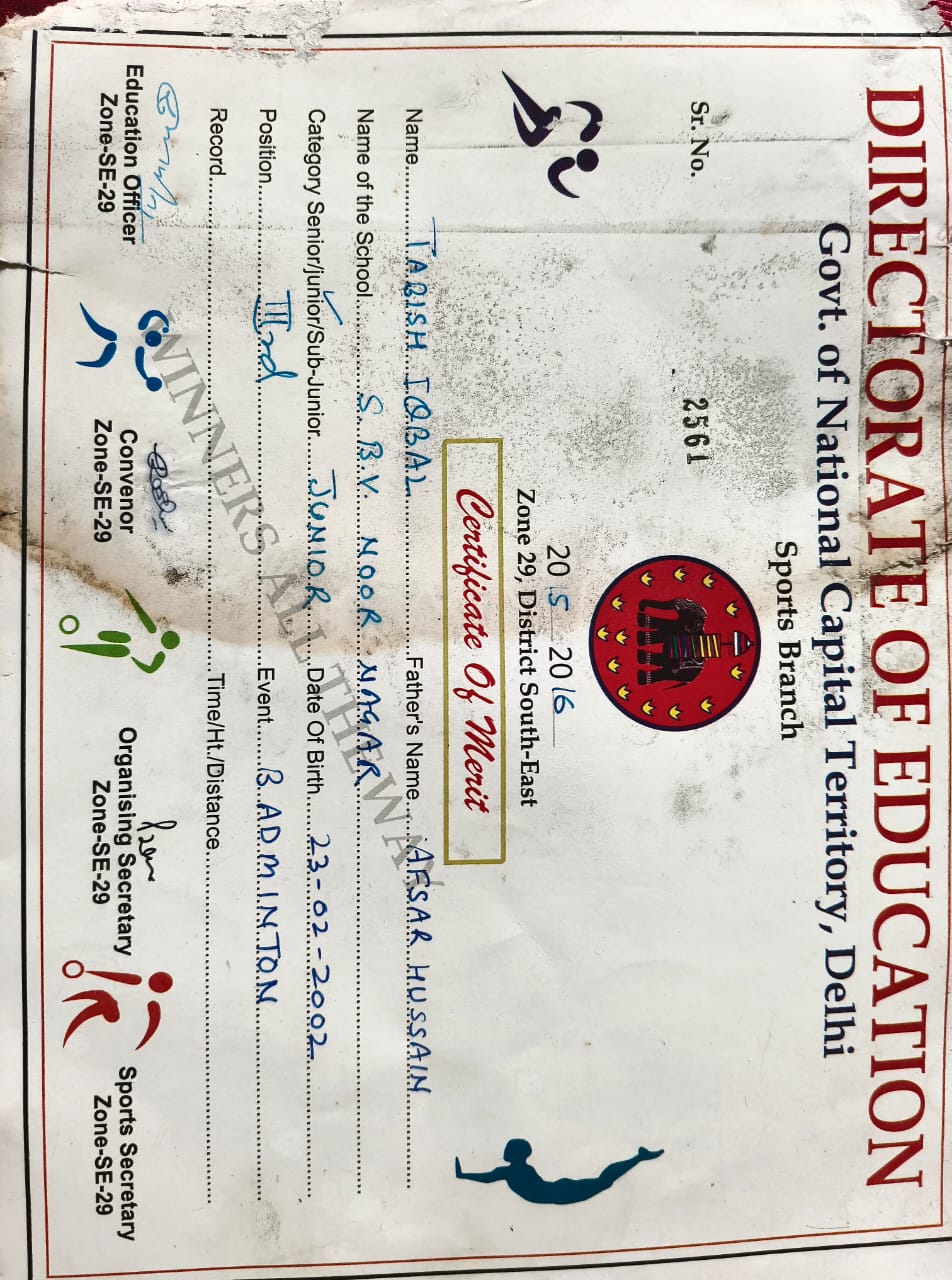 DIRECTORATE OF EDUCATION
Govt. of National Capital Territory, Delhi
Sports Branch
Sr. No. 2561
2015 2016
Zone 29, District South-East
Certificate Of Merit
Name TABISH IQBAL Father's Name AFSAR HUSSAIN
Name of the School S. B.V. NOOR NAGAR
Category Senior/junior/Sub-Junior JUNIOR Date Of Birth 23-02-2002
Position IIIrd Event BADMINTON
Record Time/Ht./Distance
WINNERS ALL THE WAY
Education Officer Convenor Organising Secretary Sports Secretary
Zone-SE-29 Zone-SE-29 Zone-SE-29 Zone-SE-29